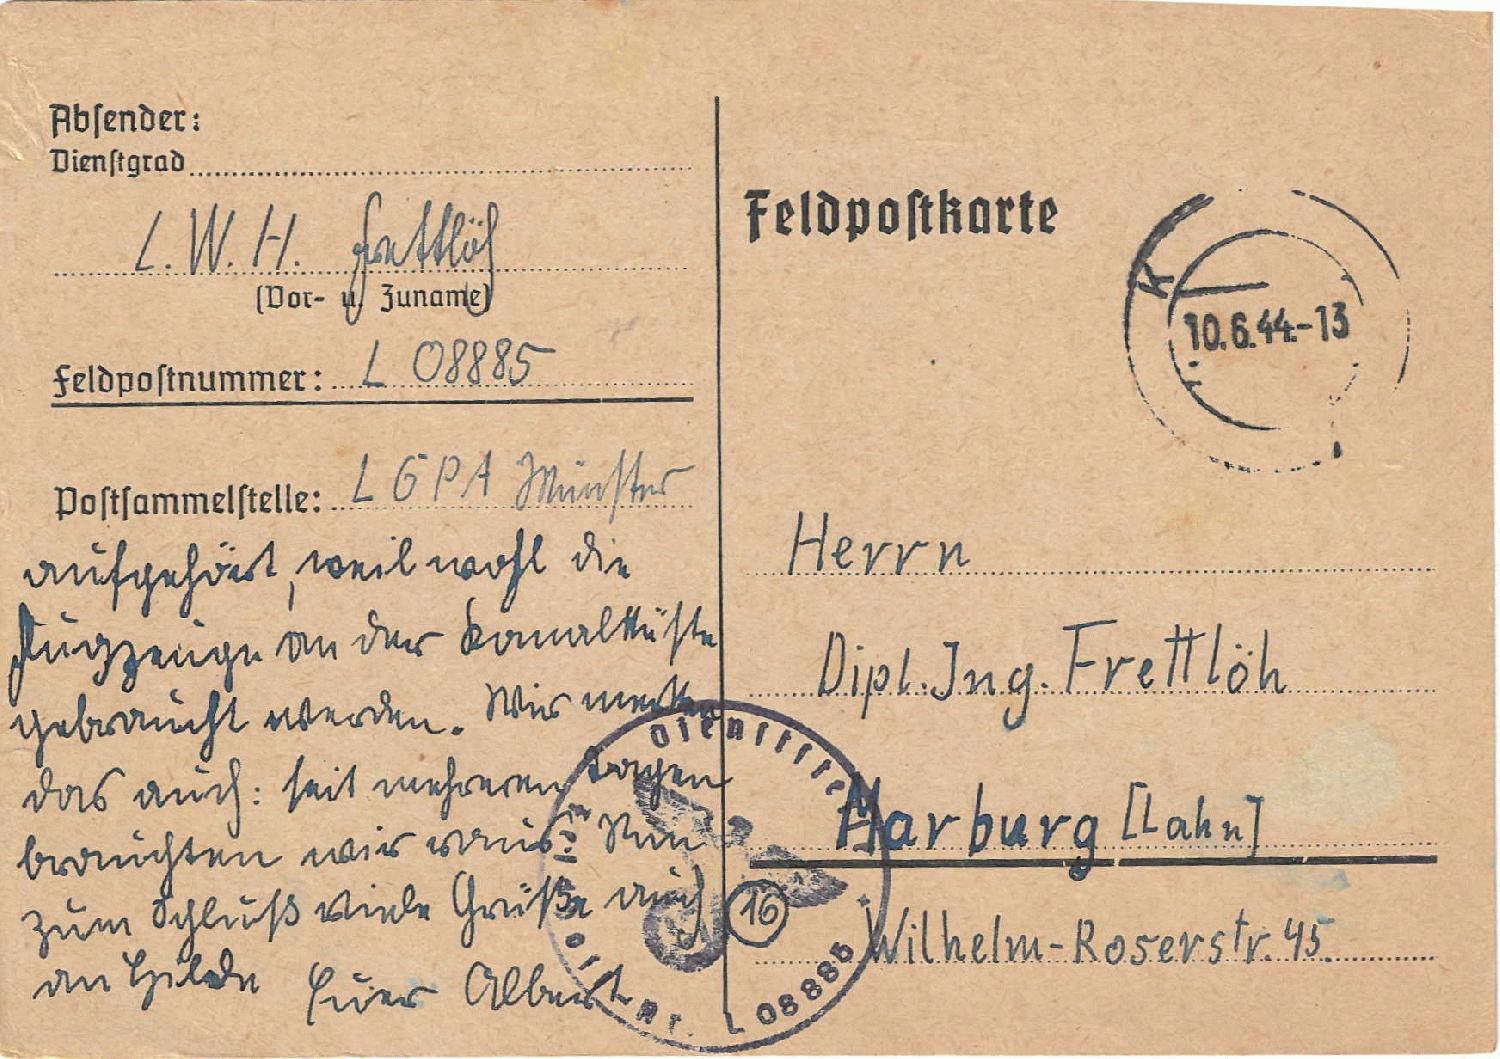 Absender:
Dienstgrad
L.W.H. Frettlöh
(Vor- u. Zuname)
Feldpostnummer: L 08885
Postsammelstelle: LGPA Münster
aufgehört, weil wohl die
Flugzeuge an der Kanalküste
gebraucht werden. Wir merken
das auch: seit mehreren Tagen
brauchten wir nicht raus. Nun
zum Schluß viele Grüße auch
an Hilde Euer Albert
Feldpostkarte
K
10.6.44.-13
Herrn
Dipl. Ing. Frettlöh
Marburg [Lahn]
Wilhelm-Roserstr. 45.
16
Nr. L 08885